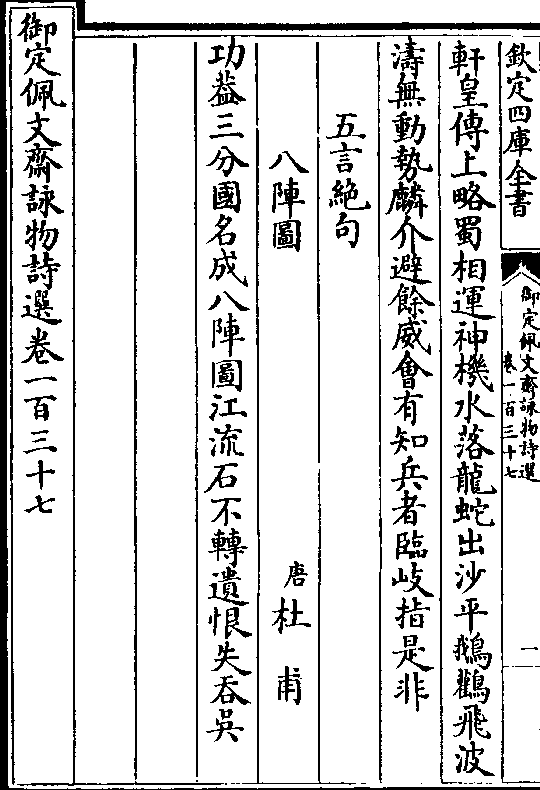 欽定四庫全書
御定佩文齋詠物詩選
卷一百三十七
一
軒皇傳上略蜀相運神機水落龍蛇出沙平鵝鸛飛波
濤無動勢麟介避餘威會有知兵者臨岐指是非
五言絶句
八陣圖
唐杜甫
功葢三分國名成八陣圖江流石不轉遺恨失吞吳
御定佩文齋詠物詩選卷一百三十七